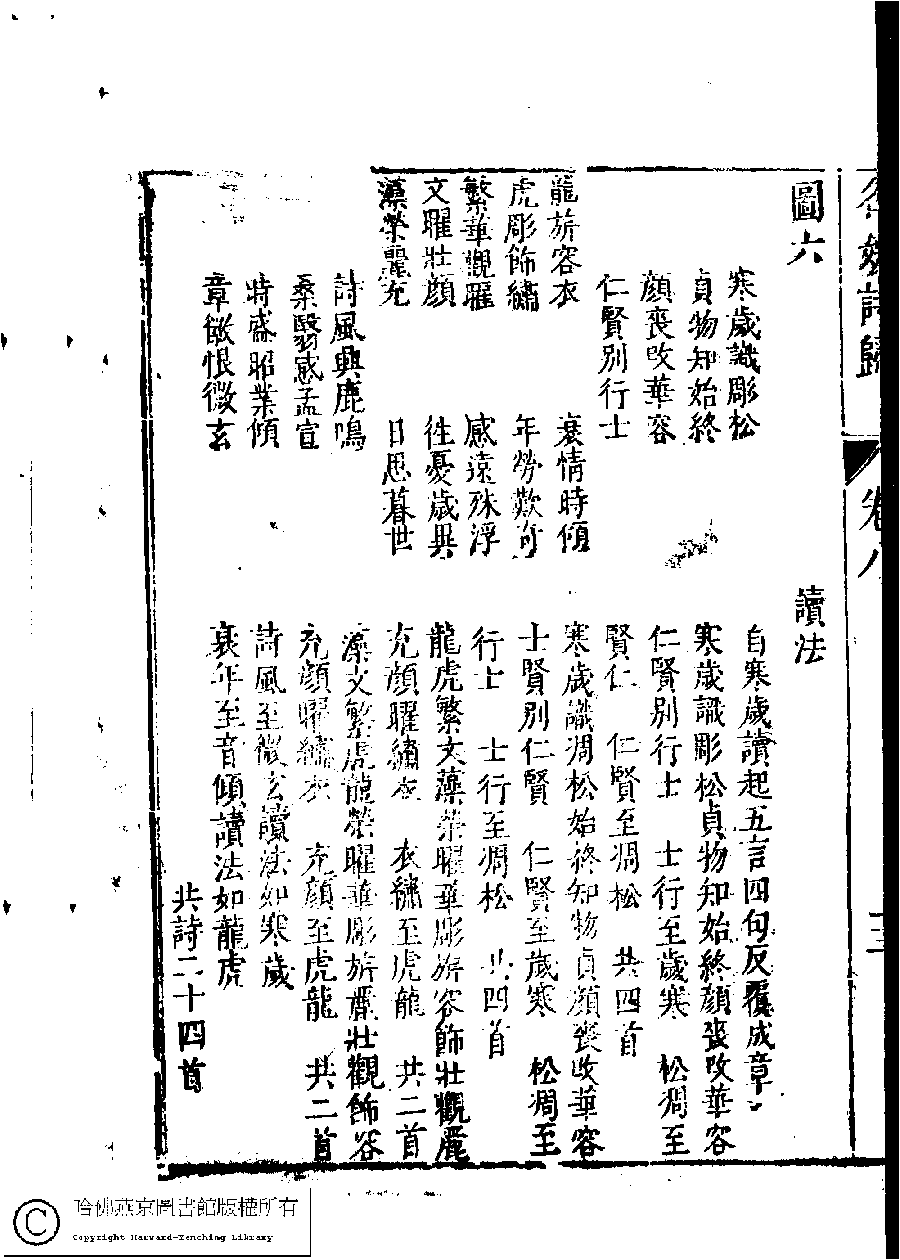 名媛詩歸
卷八
圖六
寒歲識彫松
貞物知始終
顏喪改華容
仁賢別行士
龍旂容衣
虎彫飾繡
繁華觀曜
文曜壯顏
藻榮麗充
詩風興鹿鳴
桑翳感孟宣
時盛昭業傾
章徽恨微玄
衰情時傾
年勞歎奇
感遠殊浮
徃憂歲異
日思暮世
讀法
自寒歲讀起五言四句反覆成章
寒歲識彫松貞物知始終顏喪改華容
仁賢別行士 士行至歲寒 松凋至
賢仁 仁賢至凋松 共四首
寒歲識凋松始終知物貞顏喪改華容
士賢別仁賢 仁賢至歲寒 松凋至
行士 士行至凋松 共四首
龍虎繁文藻榮曜華彫旂容飾壯觀麗
充顏曜繡衣 衣繡至虎龍 共二首
藻文繁虎龍榮曜華彫旂麗壯觀飾容
充顏曜繡衣 充顏至虎龍 共二首
詩風至微玄讀法如寒歲
衰年至音傾讀法如龍虎
共詩二十四首
哈佛燕京圖書館版權所有
Copyright Harvard-Yenching Library